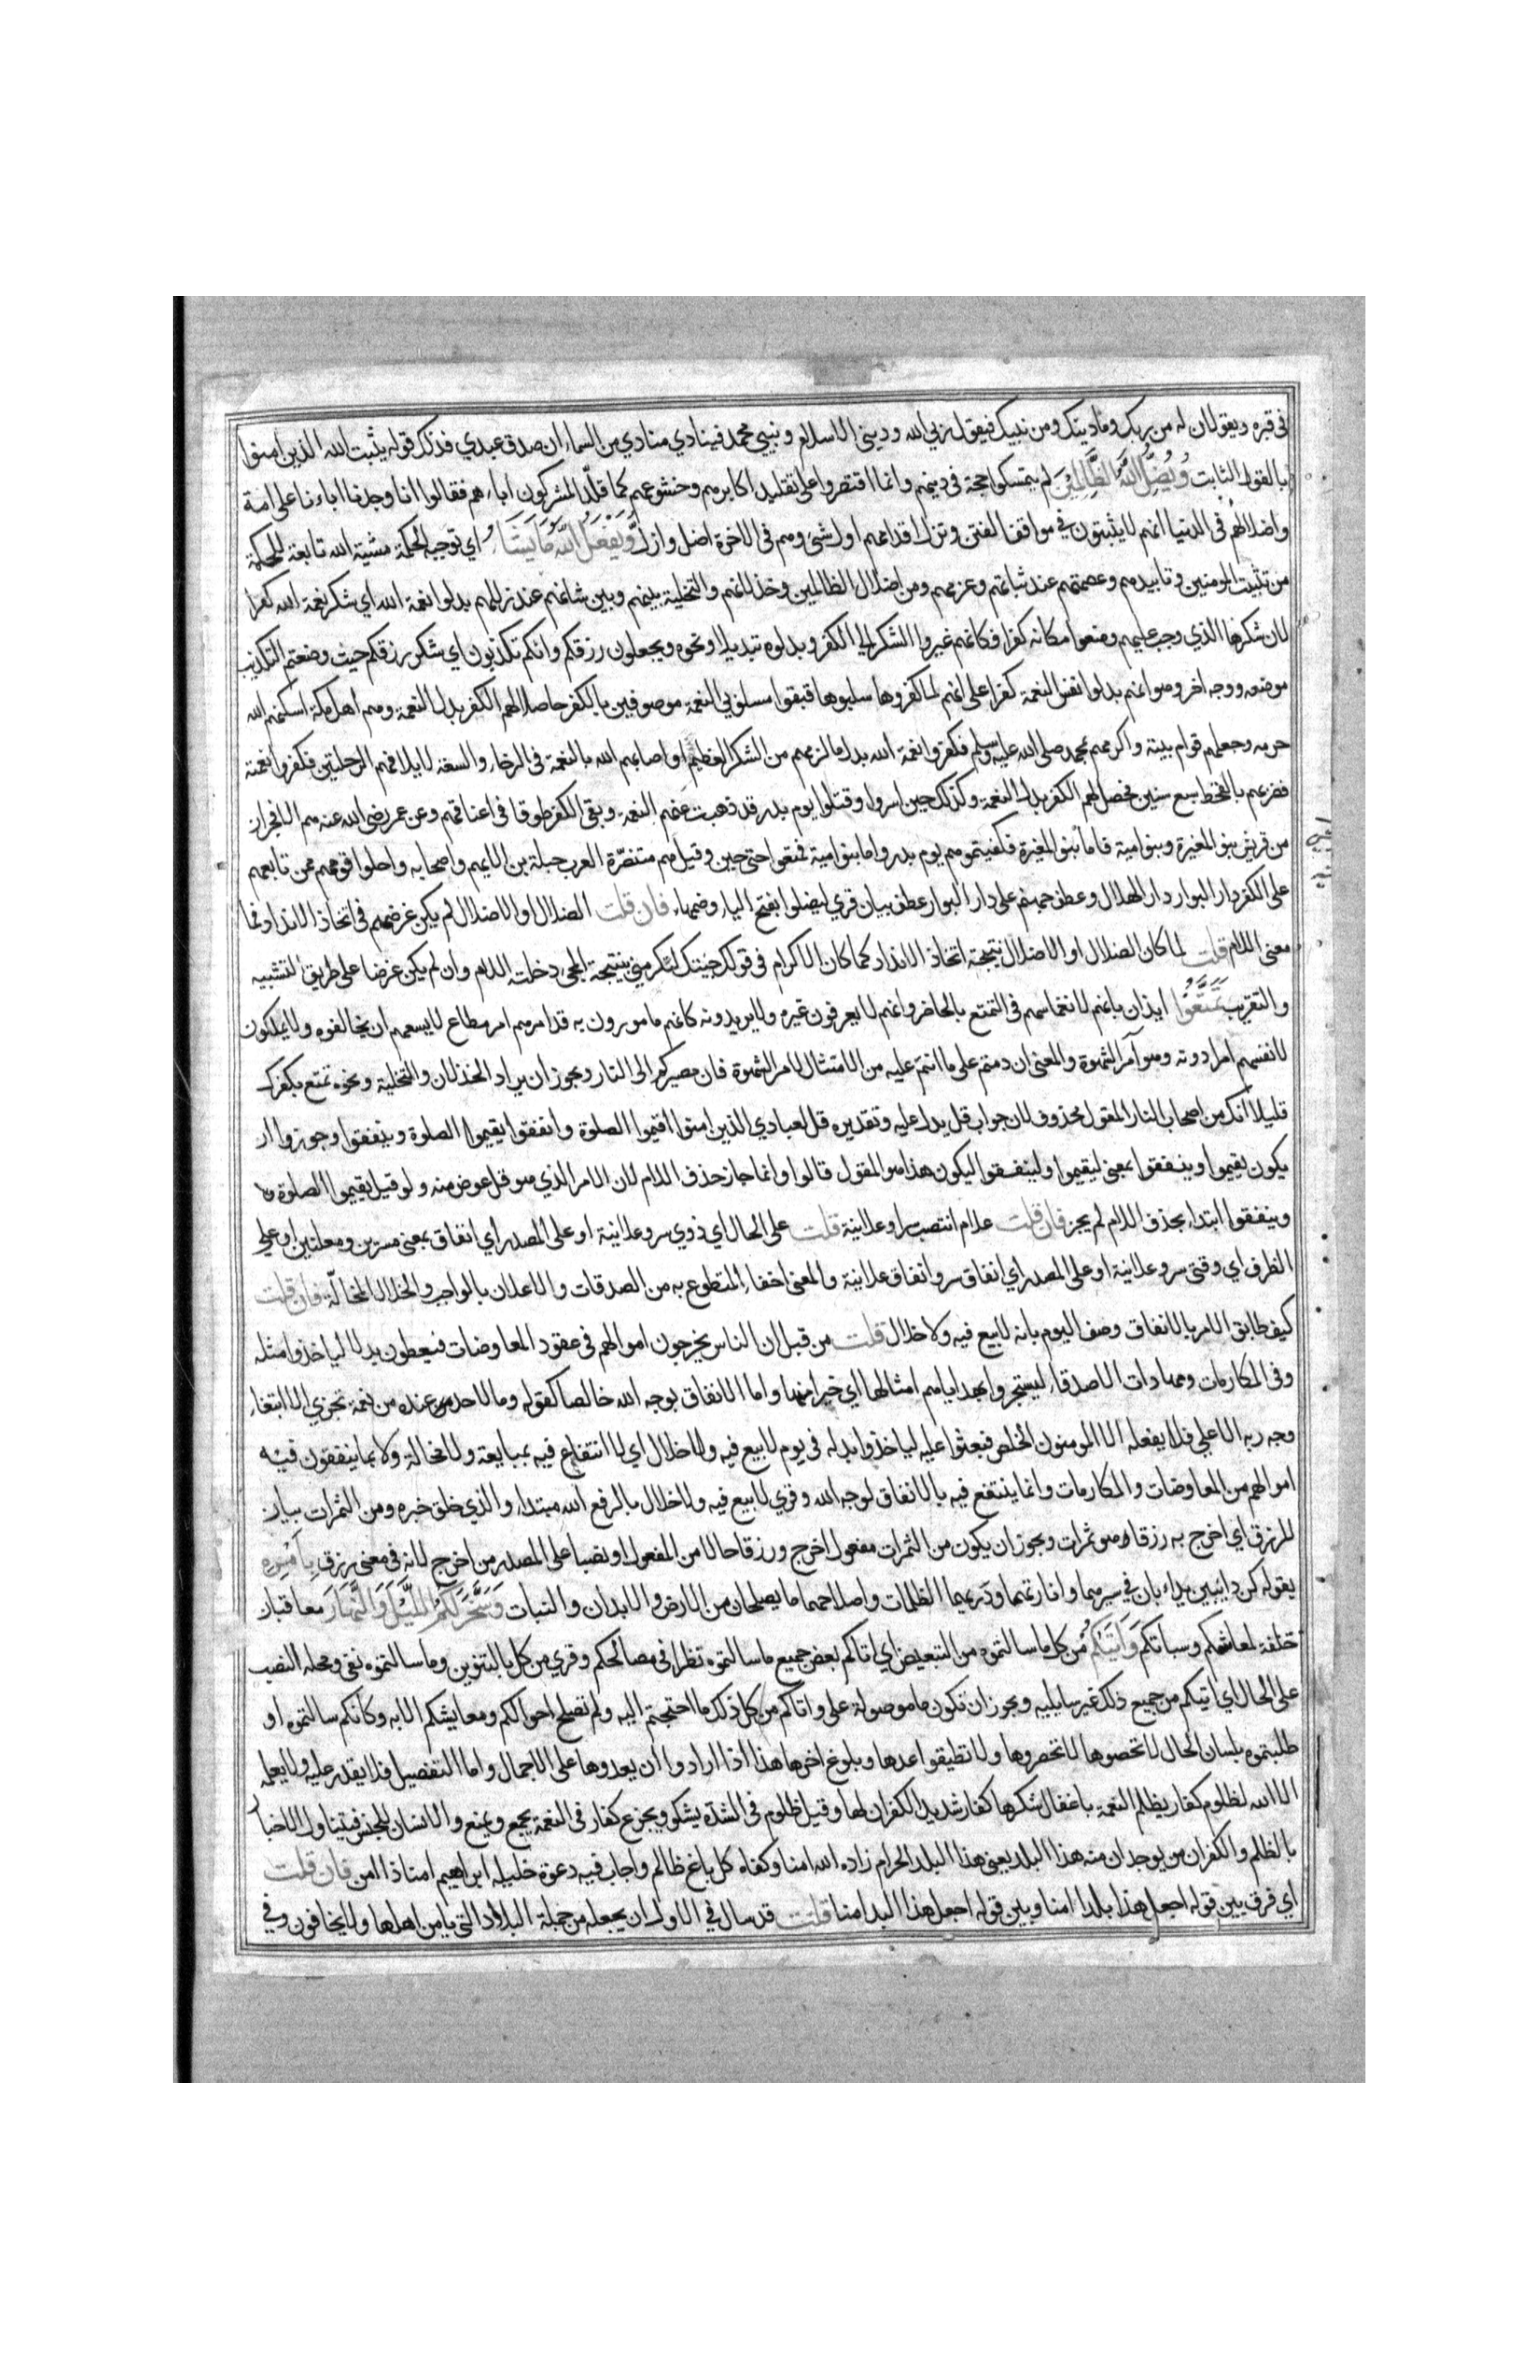 في قبره ويقولان له من ربك وما دينك ومن نبيك فيقول ربي الله وديني الاسلام ونبيي محمد فينادي منادي من السماء ان صدق عبدي فذلك قوله يثبت الله الذين امنوا
بالقول الثابت ويضل الله الظالمين لم يتمسكوا بحجة في دينهم وانما اقتصروا على تقليد اكابرهم وشيوخهم كما قلد المشركون اباءهم فقالوا انا وجدنا اباءنا على امة
واضلالهم في الدنيا انهم لا يثبتون في مواقف الفتن وتزل اقدامهم اول شئ وهم في الاخرة اضل وازل ويفعل الله ما يشاء اي توجبه الحكمة مشية الله تابعة للحكمة
من تثبيت المومنين وتاييدهم وعصمتهم عند ثباتهم وعزمهم ومن اضلال الظالمين وخذلانهم والتخلية بينهم وبين شانهم عند زللهم بدلوا نعمة الله اي شكر نعمة الله كفرا
لان شكرها الذي وجب عليهم وضعوا مكانه كفرا فكانهم غيروا الشكر الى الكفر وبدلوه تبديلا ونحوه وتجعلون رزقكم وانكم تكذبون اي شكر رزقكم حيث وضعتم التكذيب
موضعه ووجه اخر وهو انهم بدلوا نفس النعمة كفرا على انهم لما كفروها سلبوها فبقوا مسلوبي النعمة موصوفين بالكفر حاصلا لهم الكفر بدل النعمة وهم اهل مكة اسكنهم الله
حرمه وجعلهم قوام بيته واكرمهم بمحمد صلى الله عليه وسلم فكفروا نعمة الله بدل ما لزمهم من الشكر العظيم او اصابهم الله بالنعمة في الرخاء والسعة لايلافهم الرحلتين فكفروا نعمته
فضربهم بالقحط سبع سنين فحصل لهم الكفر بدل النعمة وكذلك حين اسروا وقتلوا يوم بدر قد ذهبت عنهم النعمة وبقي الكفر طوقا في اعناقهم وعن عمر رضي الله عنه هم الافجران
من قريش بنو المغيرة وبنو امية فاما بنو المغيرة فكفيتموهم يوم بدر واما بنو امية فمتعوا حتى حين وقيل هم متنصرة العرب جبلة بن الايهم واصحابه واحلوا قومهم ممن تابعهم
على الكفر دار البوار دار الهلاك وعطف جهنم على دار البوار عطف بيان قري ليضلوا بفتح الياء وضمها فان قلت الضلال او الاضلال لم يكن غرضهم في اتخاذ الانداد فما
معنى اللام قلت لما كان الضلال او الاضلال نتيجة اتخاذ الانداد كما كان الاكرام في قولك جئتك لتكرمني نتيجة المجيء دخلت اللام وان لم يكن غرضا على طريق التشبيه
والتقريب تمتعوا ايذان بانهم لانغماسهم في التمتع بالحاضر وانهم لا يعرفون غيره ولا يريدونه كانهم مامورون به قد امرهم امر مطاع لا يسعهم ان يخالفوه ولا يملكون
لانفسهم امرا دونه وهو آمر الشهوة والمعنى ان دمتم على ما انتم عليه من الامتثال لامر الشهوة فان مصيركم الى النار ويجوز ان يراد الخذلان والتخلية ونحوه تمتع بكفرك
قليلا انك من اصحاب النار المقول محذوف لان جواب قل يدل عليه وتقديره قل لعبادي الذين امنوا اقيموا الصلوة وانفقوا يقيموا الصلوة وينفقوا وجوزوا ان
يكون يقيموا وينفقوا بمعنى ليقيموا ولينفقوا ليكون هذا هو المقول قالوا وانما جاز حذف اللام لان الامر الذي هو قل عوض منه ولو قيل يقيموا الصلوة
وينفقوا ابتداء بحذف اللام لم يجز فان قلت علام انتصب سرا وعلانية قلت على الحال اي ذوي سر وعلانية او على المصدر اي انفاق بمعنى مسرين ومعلنين او على
الظرف اي وقتي سر وعلانية او على المصدر اي انفاق سر وانفاق علانية والمعنى اخفاء المتطوع به من الصدقات والاعلان بالواجب والخلال المخالة فان قلت
كيف طابق الامر بالانفاق وصف اليوم بانه لا بيع فيه ولا خلال قلت من قبل ان الناس يخرجون اموالهم في عقود المعاوضات فيعطون بدلا لياخذوا مثله
وفي المكارمات ومهادات الاصدقاء ليستجروا بهداياهم امثالها اي خيرا منها واما الانفاق لوجه الله خالصا كقوله وما لاحد عنده من نعمة تجزي الا ابتغاء
وجه ربه الاعلى فلا يفعله الا المومنون الخلص فبعثوا عليه لياخذوا بدله في يوم لا بيع فيه ولا خلال اي لا انتفاع فيه بمبايعة ولا مخالة ولا بما ينفقون فيه
اموالهم من المعاوضات والمكارمات وانما ينتفع فيه بالانفاق لوجه الله وقري لا بيع فيه ولا خلال بالرفع الله مبتدا والذي خلق خبره ومن الثمرات بيان
للرزق اي اخرج به رزقا هو ثمرات ويجوز ان يكون من الثمرات مفعول اخرج ورزقا حالا من المفعول او نصبا على المصدر من اخرج لانه في معنى رزق بامره
يقوله كن دائبين يداءبان في سيرهما وانارتهما ودريهما الظلمات واصلاحهما ما يصلحان من الارض والابدان والنبات وسخر لكم الليل والنهار معاقبان
خلفة لمعاشكم وسباتكم واتيكم من كل ما سالتموه من التبعيض اي اتاكم بعض جميع ما سالتموه نظرا في مصالحكم وقري من كل بالتنوين وما سالتموه نفي ومحله النصب
على الحال اي اتيكم من جميع ذلك غير سايليه ويجوز ان تكون ما موصولة على واتاكم من كل ذلك ما احتجتم اليه ولم تصلح احوالكم ومعايشكم الا به وكانكم سالتموه او
طلبتموه بلسان الحال لا تحصوها لا تحصروها ولا تطيقوا عدها وبلوغ اخرها هذا اذا ارادوا ان يعدوها على الاجمال واما التفصيل فلا يقدر عليه ولا يعلمه
الا الله لظلوم كفار يظلم النعمة باغفال شكرها كفار شديد الكفران لها وقيل ظلوم في الشدة يشكو ويجزع كفار في النعمة يجمع ويمنع والانسان للجنس فيتناول الاخبار
بالظلم والكفران من يوجدان منه هذا البلد يعني هذا البلد الحرام زاده الله امنا وكفاه كل باغ ظالم واجاب فيه دعوة خليله ابراهيم امنا ذا امن فان قلت
اي فرق بين قوله اجعل هذا بلدا امنا وبين قوله اجعل هذا البلد امنا قلت قد سال في الاول ان يجعله من جملة البلاد التي يامن اهلها ولا يخافون وفي